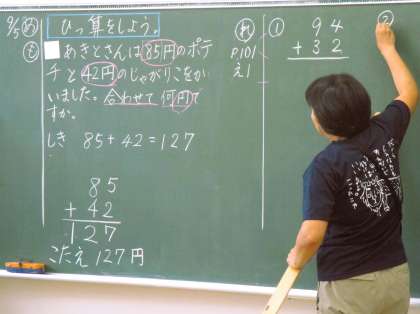 9/5 め ひっ算をしよう。
も
あきとさんは85円のポテ
チと42円のじゃがりこをか
いました。合わせて何円で
すか。
しき 85+42=127
85
+ 42
127
こたえ 127円
れ
P.101
え1
① 94
+32
②